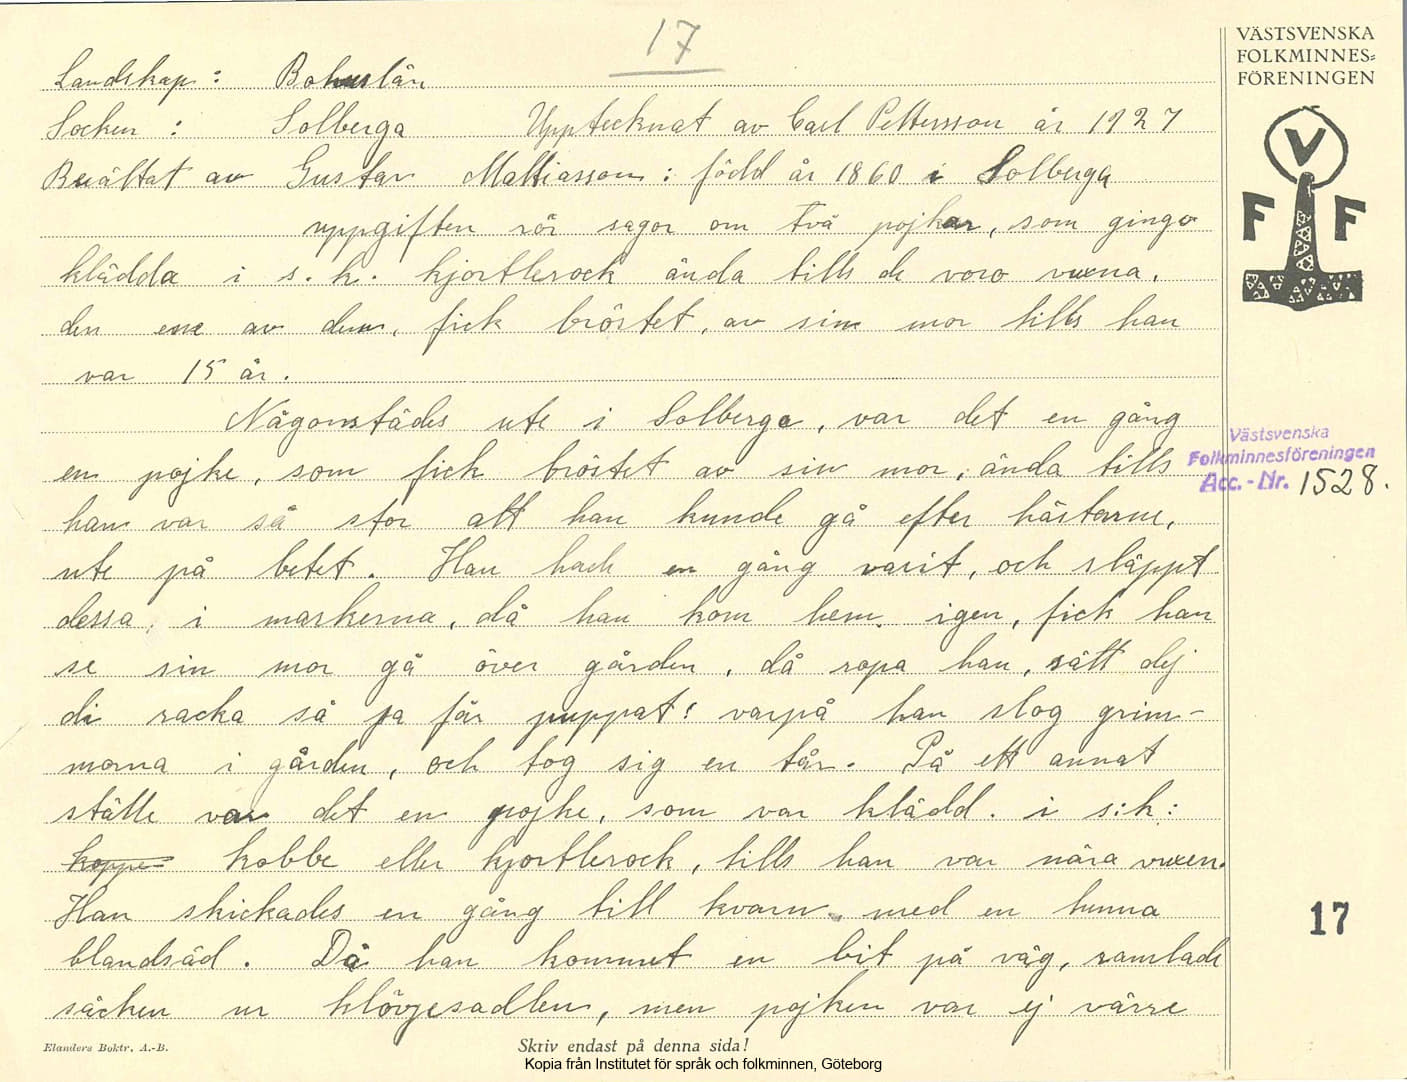 17
VÄSTSVENSKA
FOLKMINNES=
FÖRENINGEN
V
F F
Landskap: Bohuslän
Socken : Solberga Upptecknat av Carl Pettersson år 1927
Berättat av Gustav Mattiasson: född år 1860 i Solberga
uppgiften rör sagor om två pojkar, som gingo
klädda i s.k. kjortlerock ända tills de voro vuxna.
den ene av dem, fick bröstet, av sin mor tills han
var 15 år.
Någonstädes ute i Solberga, var det en gång
en pojke, som fick bröstet av sin mor, ända tills
han var så stor att han kunde gå efter hästarne,
ute på betet. Han hade en gång varit, och släppt
dessa, i markerna, då han kom hem, igen, fick han
se sin mor gå över gården, då ropa han, sätt dej
di racka så ja får puppat! varpå han slog grim-
morna i gården, och tog sig en tår. På ett annat
ställe var det en pojke, som var klädd. i s:k:
koppe kobbe eller kjortlerock, tills han var nära vuxen.
Han skickades en gång till kvarn, med en tunna
blandsäd. Då han kommet en bit på väg, ramlade
säcken ur klövjesadlen, men pojken var ej värre
Västsvenska
Folkminnesföreningen
Acc.-Nr. 1528.
17
Elanders Boktr. A.-B.
Skriv endast på denna sida!
Kopia från Institutet för språk och folkminnen, Göteborg